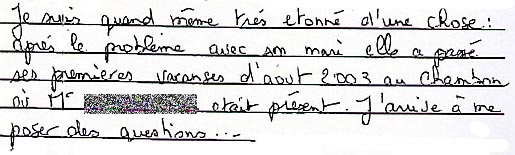 Je suis quand même trés etonné d'une chose :
aprés le problème avec son mari elle a passé
ses premières vacanses d'aout 2003 au Chambon
où Mr était présent. J'arrive à me
poser des questions...